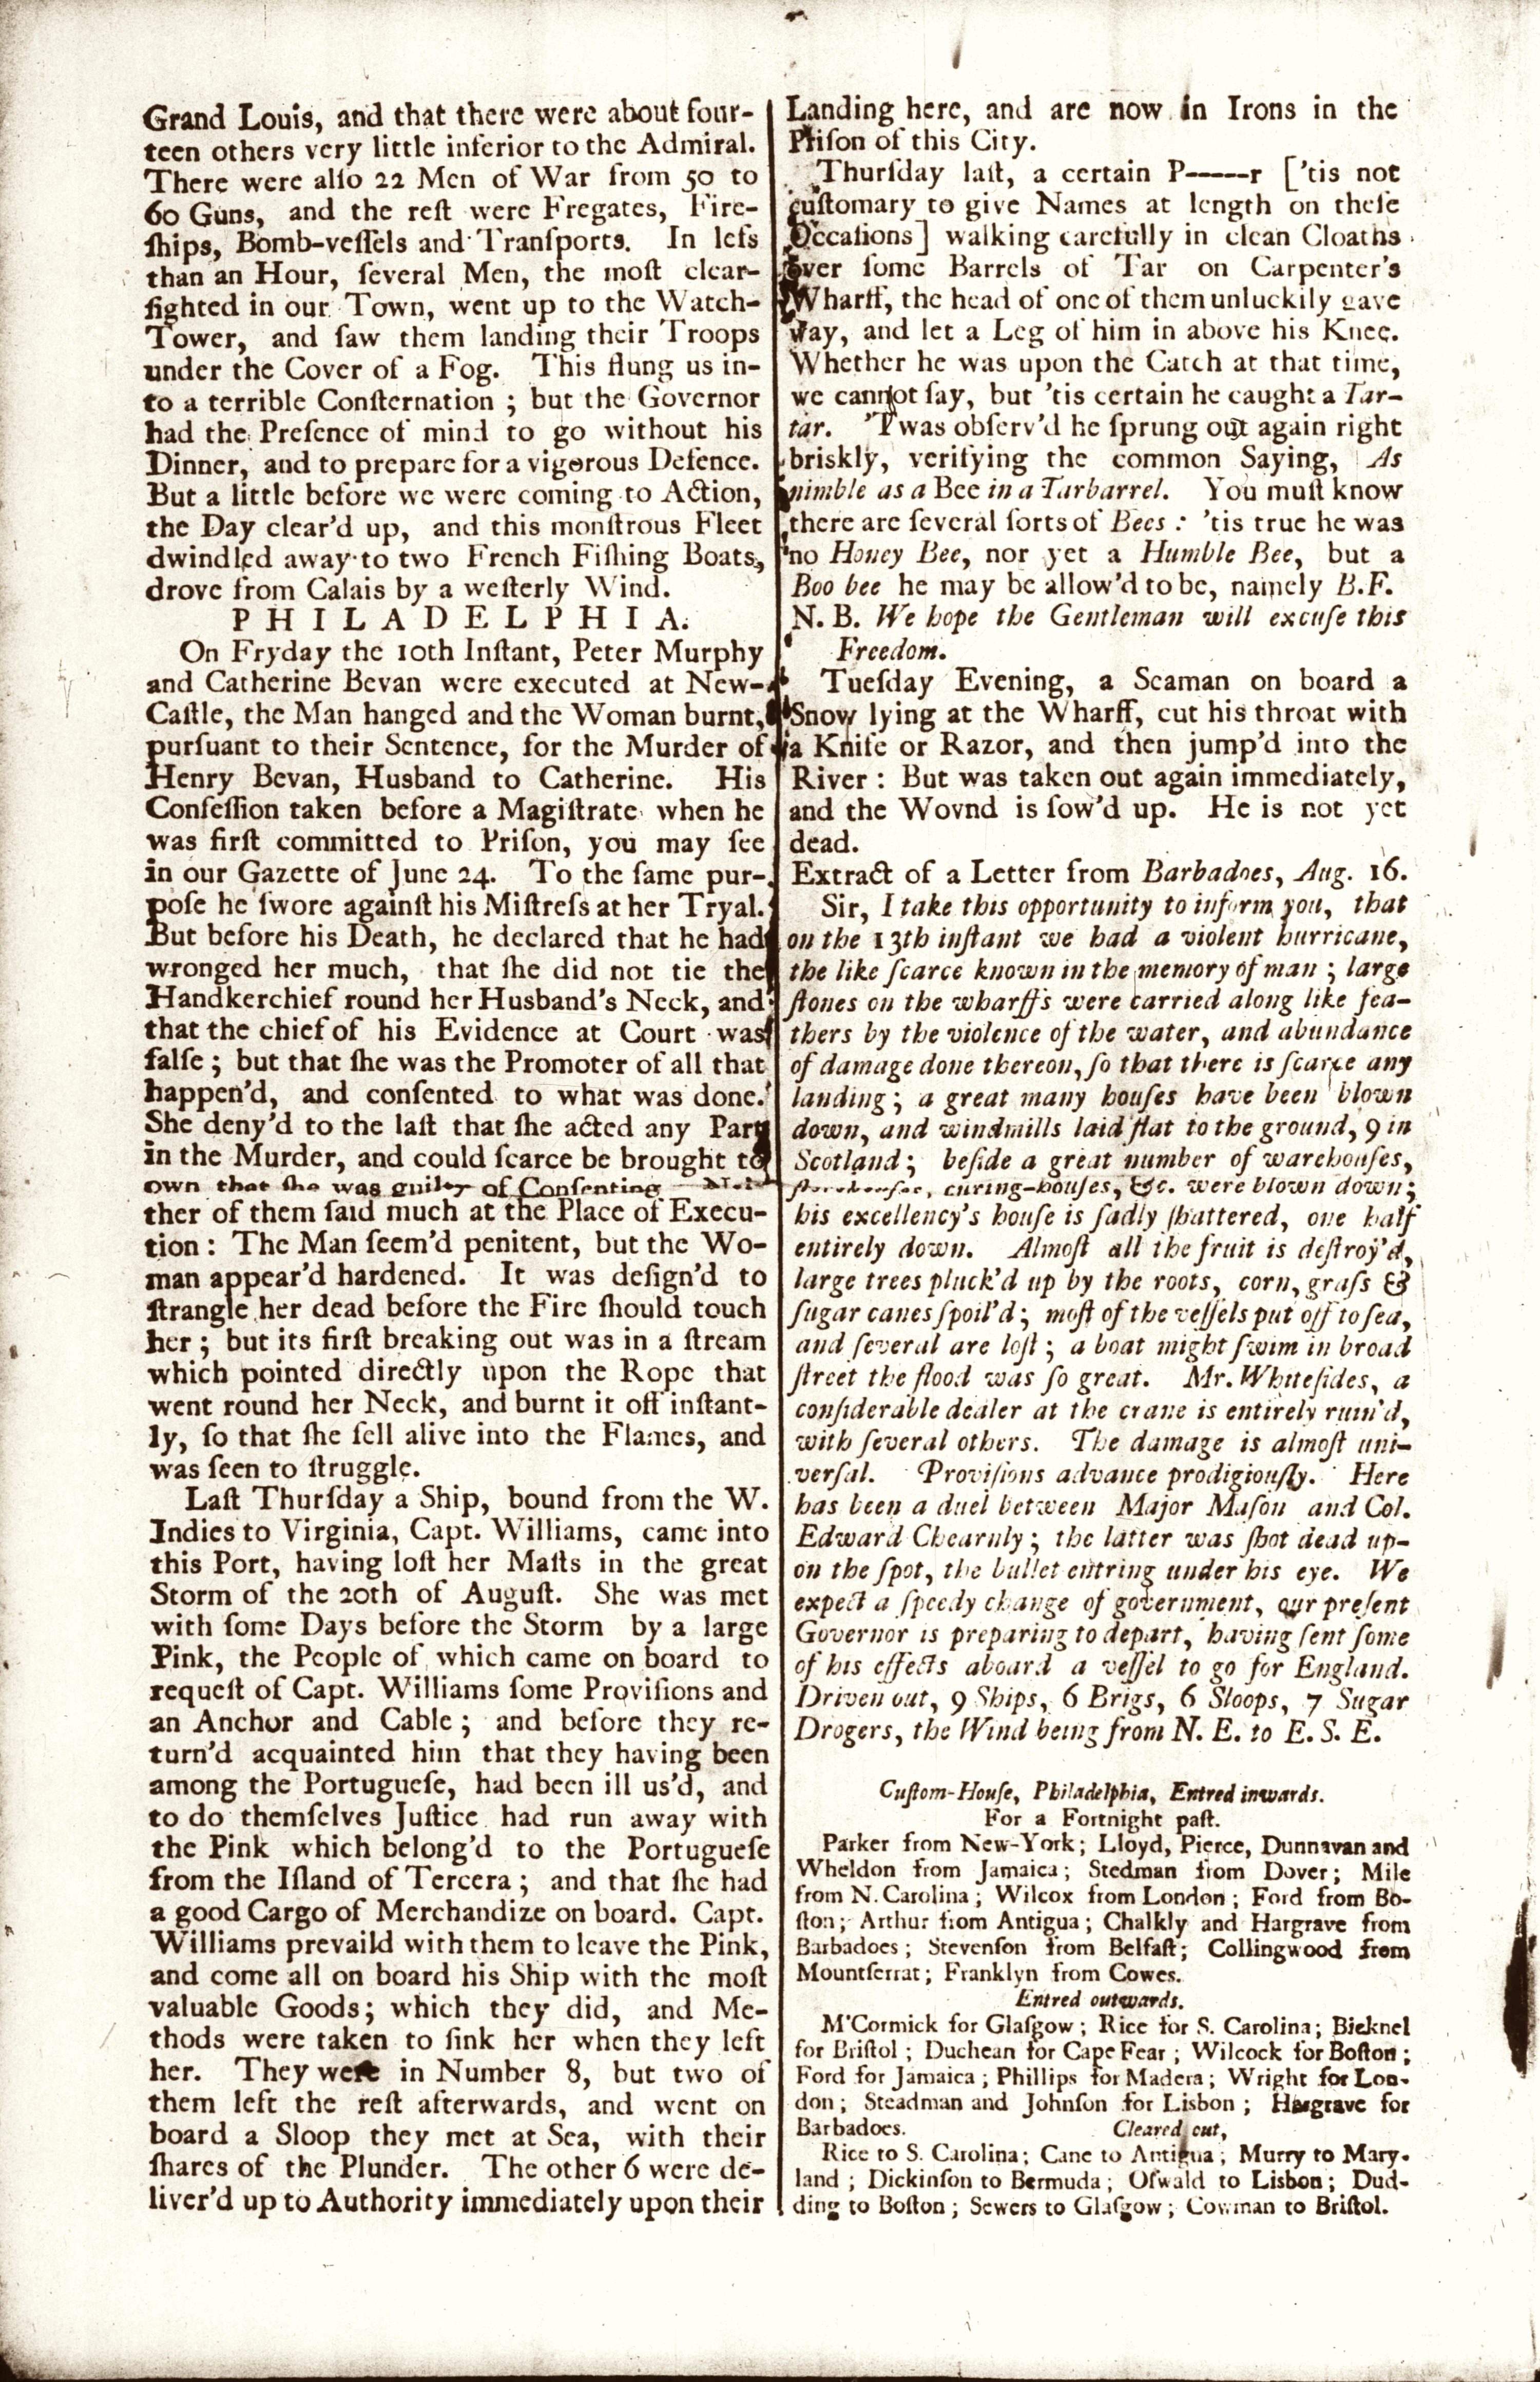 Grand Louis, and that there were about four-
teen others very little inferior to the Admiral.
There were alſo 22 Men of War from 50 to
60 Guns, and the reſt were Fregates, Fire-
ſhips, Bomb-veſſels and Tranſports. In leſs
than an Hour, ſeveral Men, the moſt clear-
ſighted in our Town, went up to the Watch-
Tower, and ſaw them landing their Troops
under the Cover of a Fog. This flung us in-
to a terrible Conſternation ; but the Governor
had the Preſence of mind to go without his
Dinner, and to prepare for a vigorous Defence.
But a little before we were coming to Action,
the Day clear'd up, and this monſtrous Fleet
dwindled away to two French Fiſhing Boats,
drove from Calais by a weſterly Wind.
PHILADELPHIA.
On Fryday the 10th Inſtant, Peter Murphy
and Catherine Bevan were executed at New-
Caſtle, the Man hanged and the Woman burnt,
purſuant to their Sentence, for the Murder of
Henry Bevan, Husband to Catherine. His
Confeſſion taken before a Magiſtrate when he
was firſt committed to Priſon, you may ſee
in our Gazette of June 24. To the ſame pur-
poſe he ſwore againſt his Miſtreſs at her Tryal.
But before his Death, he declared that he had
wronged her much, that ſhe did not tie the
Handkerchief round her Husband's Neck, and
that the chief of his Evidence at Court was
falſe ; but that ſhe was the Promoter of all that
happen'd, and conſented to what was done.
She deny'd to the laſt that ſhe acted any Part
in the Murder, and could ſcarce be brought to
own that ſhe was guilty of Conſenting Nei-
ther of them ſaid much at the Place of Execu-
tion : The Man ſeem'd penitent, but the Wo-
man appear'd hardened. It was deſign'd to
ſtrangle her dead before the Fire ſhould touch
her ; but its firſt breaking out was in a ſtream
which pointed directly upon the Rope that
went round her Neck, and burnt it off inſtant-
ly, ſo that ſhe fell alive into the Flames, and
was ſeen to ſtruggle.
Laſt Thurſday a Ship, bound from the W.
Indies to Virginia, Capt. Williams, came into
this Port, having loſt her Maſts in the great
Storm of the 20th of Auguſt. She was met
with ſome Days before the Storm by a large
Pink, the People of which came on board to
requeſt of Capt. Williams ſome Proviſions and
an Anchor and Cable ; and before they re-
turn'd acquainted him that they having been
among the Portugueſe, had been ill us'd, and
to do themſelves Juſtice had run away with
the Pink which belong'd to the Portugueſe
from the Iſland of Tercera ; and that ſhe had
a good Cargo of Merchandize on board. Capt.
Williams prevaild with them to leave the Pink,
and come all on board his Ship with the moſt
valuable Goods; which they did, and Me-
thods were taken to ſink her when they left
her. They were in Number 8, but two of
them left the reſt afterwards, and went on
board a Sloop they met at Sea, with their
ſhares of the Plunder. The other 6 were de-
liver'd up to Authority immediately upon their
Landing here, and are now in Irons in the
Priſon of this City.
Thurſday laſt, a certain P-----r ['tis not
cuſtomary to give Names at length on theſe
Occaſions] walking carefully in clean Cloaths
over ſome Barrels of Tar on Carpenter's
Wharff, the head of one of them unluckily gave
way, and let a Leg of him in above his Knee.
Whether he was upon the Catch at that time,
we cannot ſay, but 'tis certain he caught a Tar-
tar. 'Twas obſerv'd he ſprung out again right
briskly, verifying the common Saying, As
nimble as a Bee in a Tarbarrel. You muſt know
there are ſeveral ſorts of Bees : 'tis true he was
no Honey Bee, nor yet a Humble Bee, but a
Boo bee he may be allow'd to be, namely B.F.
N. B. We hope the Gentleman will excuſe this
Freedom.
Tueſday Evening, a Seaman on board a
Snow lying at the Wharff, cut his throat with
a Knife or Razor, and then jump'd into the
River : But was taken out again immediately,
and the Wovnd is ſow'd up. He is not yet
dead.
Extract of a Letter from Barbadoes, Aug. 16.
Sir, I take this opportunity to inform you, that
on the 13th inſtant we had a violent hurricane,
the like ſcarce known in the memory of man ; large
ſtones on the wharffs were carried along like fea-
thers by the violence of the water, and abundance
of damage done thereon, ſo that there is ſcarce any
landing ; a great many houſes have been blown
down, and windmills laid flat to the ground, 9 in
Scotland ; beſide a great number of warehouſes,
ſtorehouſes, curing-houſes, &c. were blown down ;
his excellency's houſe is ſadly ſhattered, one half
entirely down. Almoſt all the fruit is deſtroy'd,
large trees pluck'd up by the roots, corn, graſs &
ſugar canes ſpoil'd ; moſt of the veſſels put off to ſea,
and ſeveral are loſt ; a boat might ſwim in broad
ſtreet the flood was ſo great. Mr. Whiteſides, a
conſiderable dealer at the crane is entirely ruin'd,
with ſeveral others. The damage is almoſt uni-
verſal. Proviſions advance prodigiouſly. Here
has been a duel between Major Maſon and Col.
Edward Chearnly ; the latter was ſhot dead up-
on the ſpot, the bullet entring under his eye. We
expect a ſpeedy change of government, our preſent
Governor is preparing to depart, having ſent ſome
of his effects aboard a veſſel to go for England.
Driven out, 9 Ships, 6 Brigs, 6 Sloops, 7 Sugar
Drogers, the Wind being from N. E. to E. S. E.
Cuſtom-Houſe, Philadelphia, Entred inwards.
For a Fortnight paſt.
Parker from New-York ; Lloyd, Pierce, Dunnavan and
Wheldon from Jamaica ; Stedman from Dover ; Mile
from N. Carolina ; Wilcox from London ; Ford from Bo-
ſton ; Arthur from Antigua ; Chalkly and Hargrave from
Barbadoes ; Stevenſon from Belfaſt ; Collingwood from
Mountſerrat ; Franklyn from Cowes.
Entred outwards.
M'Cormick for Glaſgow ; Rice for S. Carolina ; Bicknel
for Briſtol ; Duchean for Cape Fear ; Wilcock for Boſton ;
Ford for Jamaica ; Phillips for Madera ; Wright for Lon-
don ; Steadman and Johnſon for Lisbon ; Hargrave for
Barbadoes. Cleared out,
Rice to S. Carolina ; Cane to Antigua ; Murry to Mary-
land ; Dickinſon to Bermuda ; Oſwald to Lisbon ; Dud-
ding to Boſton ; Sewers to Glaſgow ; Cowman to Briſtol.